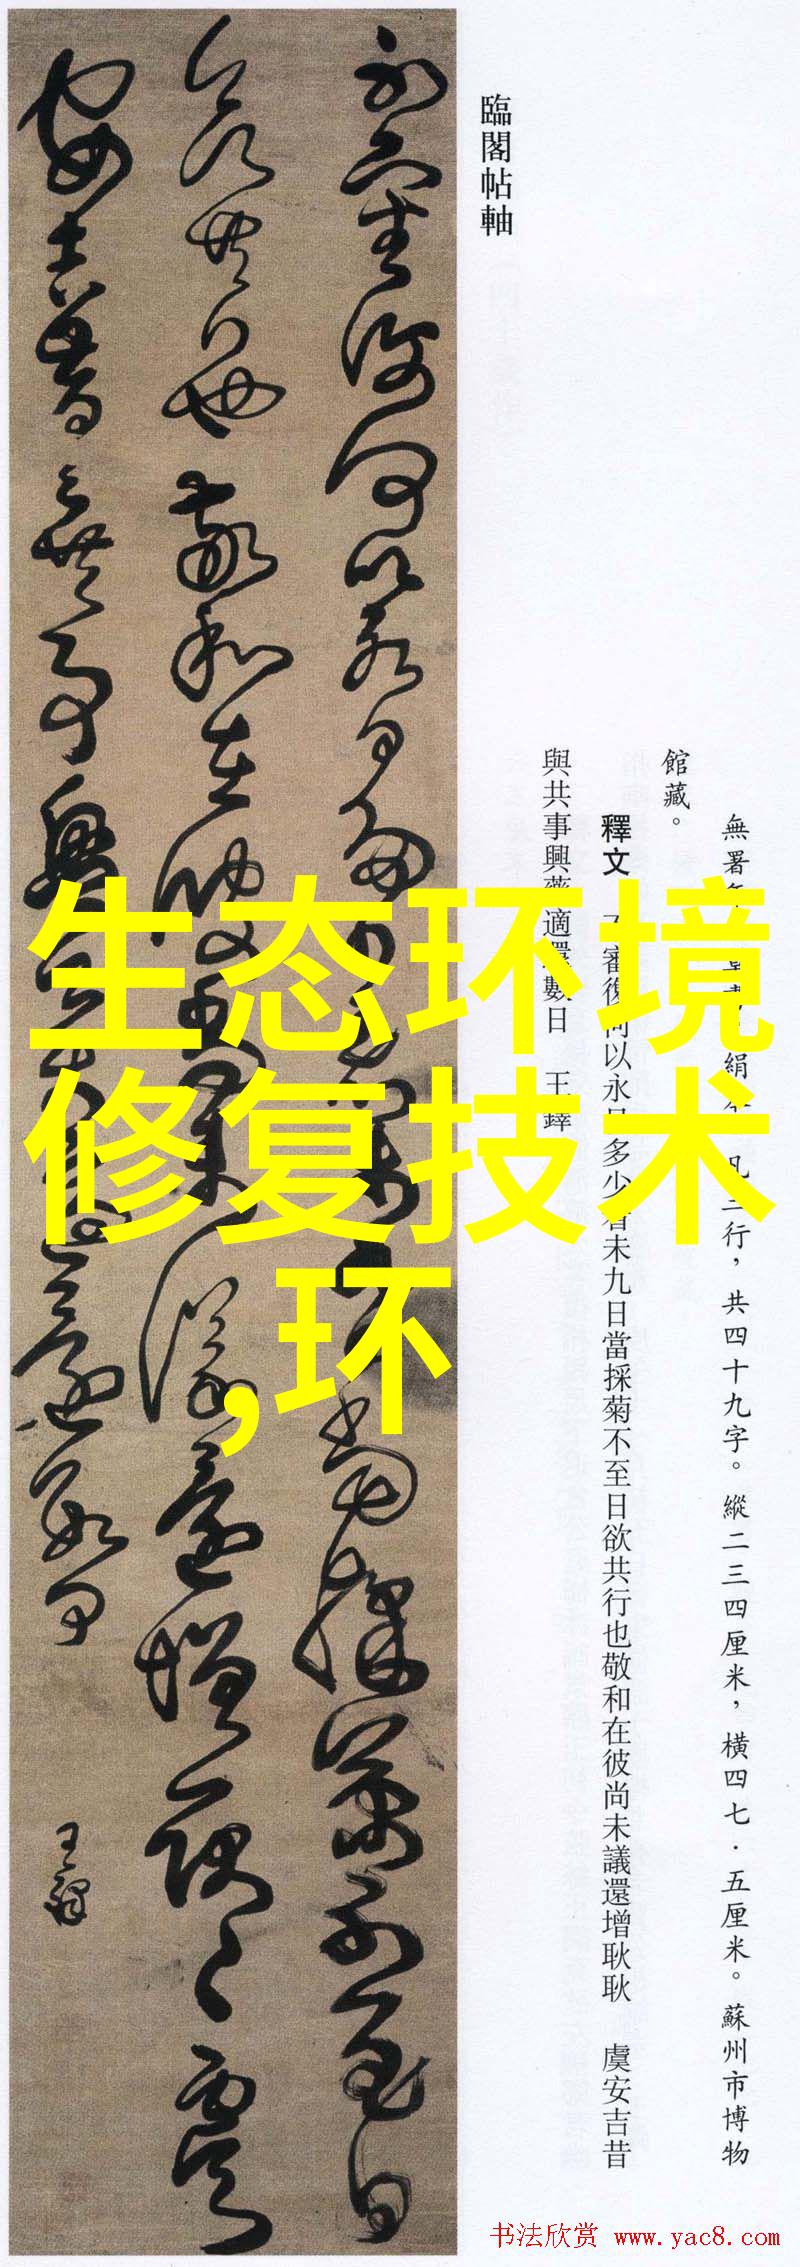 臨閣帖軸
無署年 絹本 凡三行，共四十九字。縱二三四厘米，橫四七·五厘米。蘇州市博物
館藏。
釋文 不審復何以永日多少看未九日當採菊不至日欲共行也敬和在彼尚未議還增耿耿 虞安吉昔
與共事興藥適還數日 王鐸
生态环境
修复技术
,环
书法欣赏 www.yac8.com